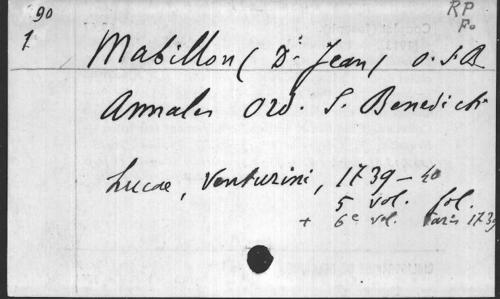 90 RP
1 Fo
Mabillon (Dr. Jean) O.S.B
Annales Ord. S. Benedicti
Lucae, Venturini, 1739-40
5 vol. fol.
+ 6e vol. Paris 1739